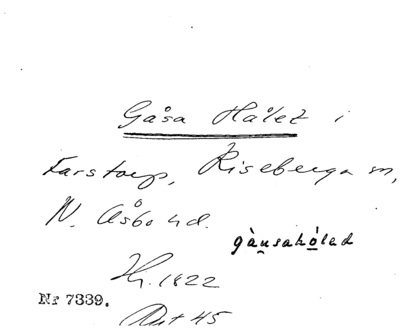 Gåsa Hålet i
Farstorp, Riseberga sn,
N. Åsbo hd.
gàu̲sahò̲led
Hr. 1822
Nr 7339.
Akt 45